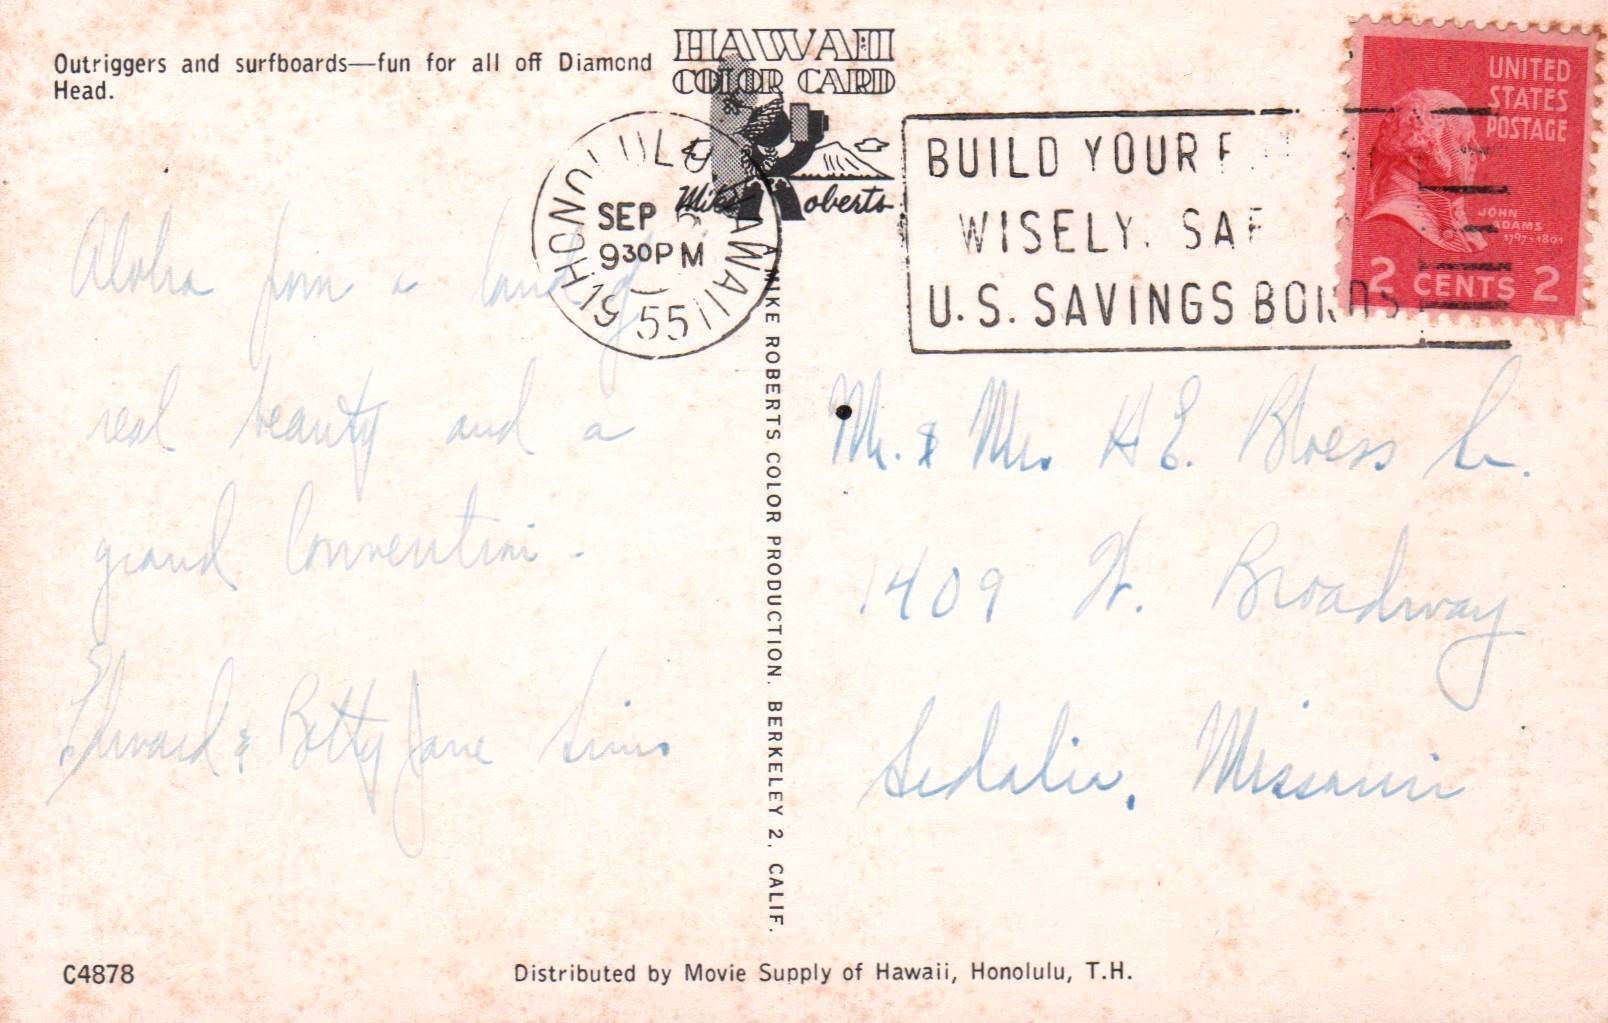 Outriggers and surfboards—fun for all off Diamond
Head.
HAWAII
COLOR CARD
Mike Roberts
HONOLULU HAWAII
SEP
930PM
1955
BUILD YOUR F
WISELY. SAF
U.S. SAVINGS BONDS
UNITED
STATES
POSTAGE
JOHN
ADAMS
1797-1801
2 CENTS 2
Aloha from a land of
real beauty and a
grand Convention -
Edward & Betty Jane Sims
A MIKE ROBERTS COLOR PRODUCTION. BERKELEY 2, CALIF.
Mr. & Mrs. H E. Bloess Sr.
1409 W. Broadway
Sedalia, Missouri
C4878
Distributed by Movie Supply of Hawaii, Honolulu, T.H.